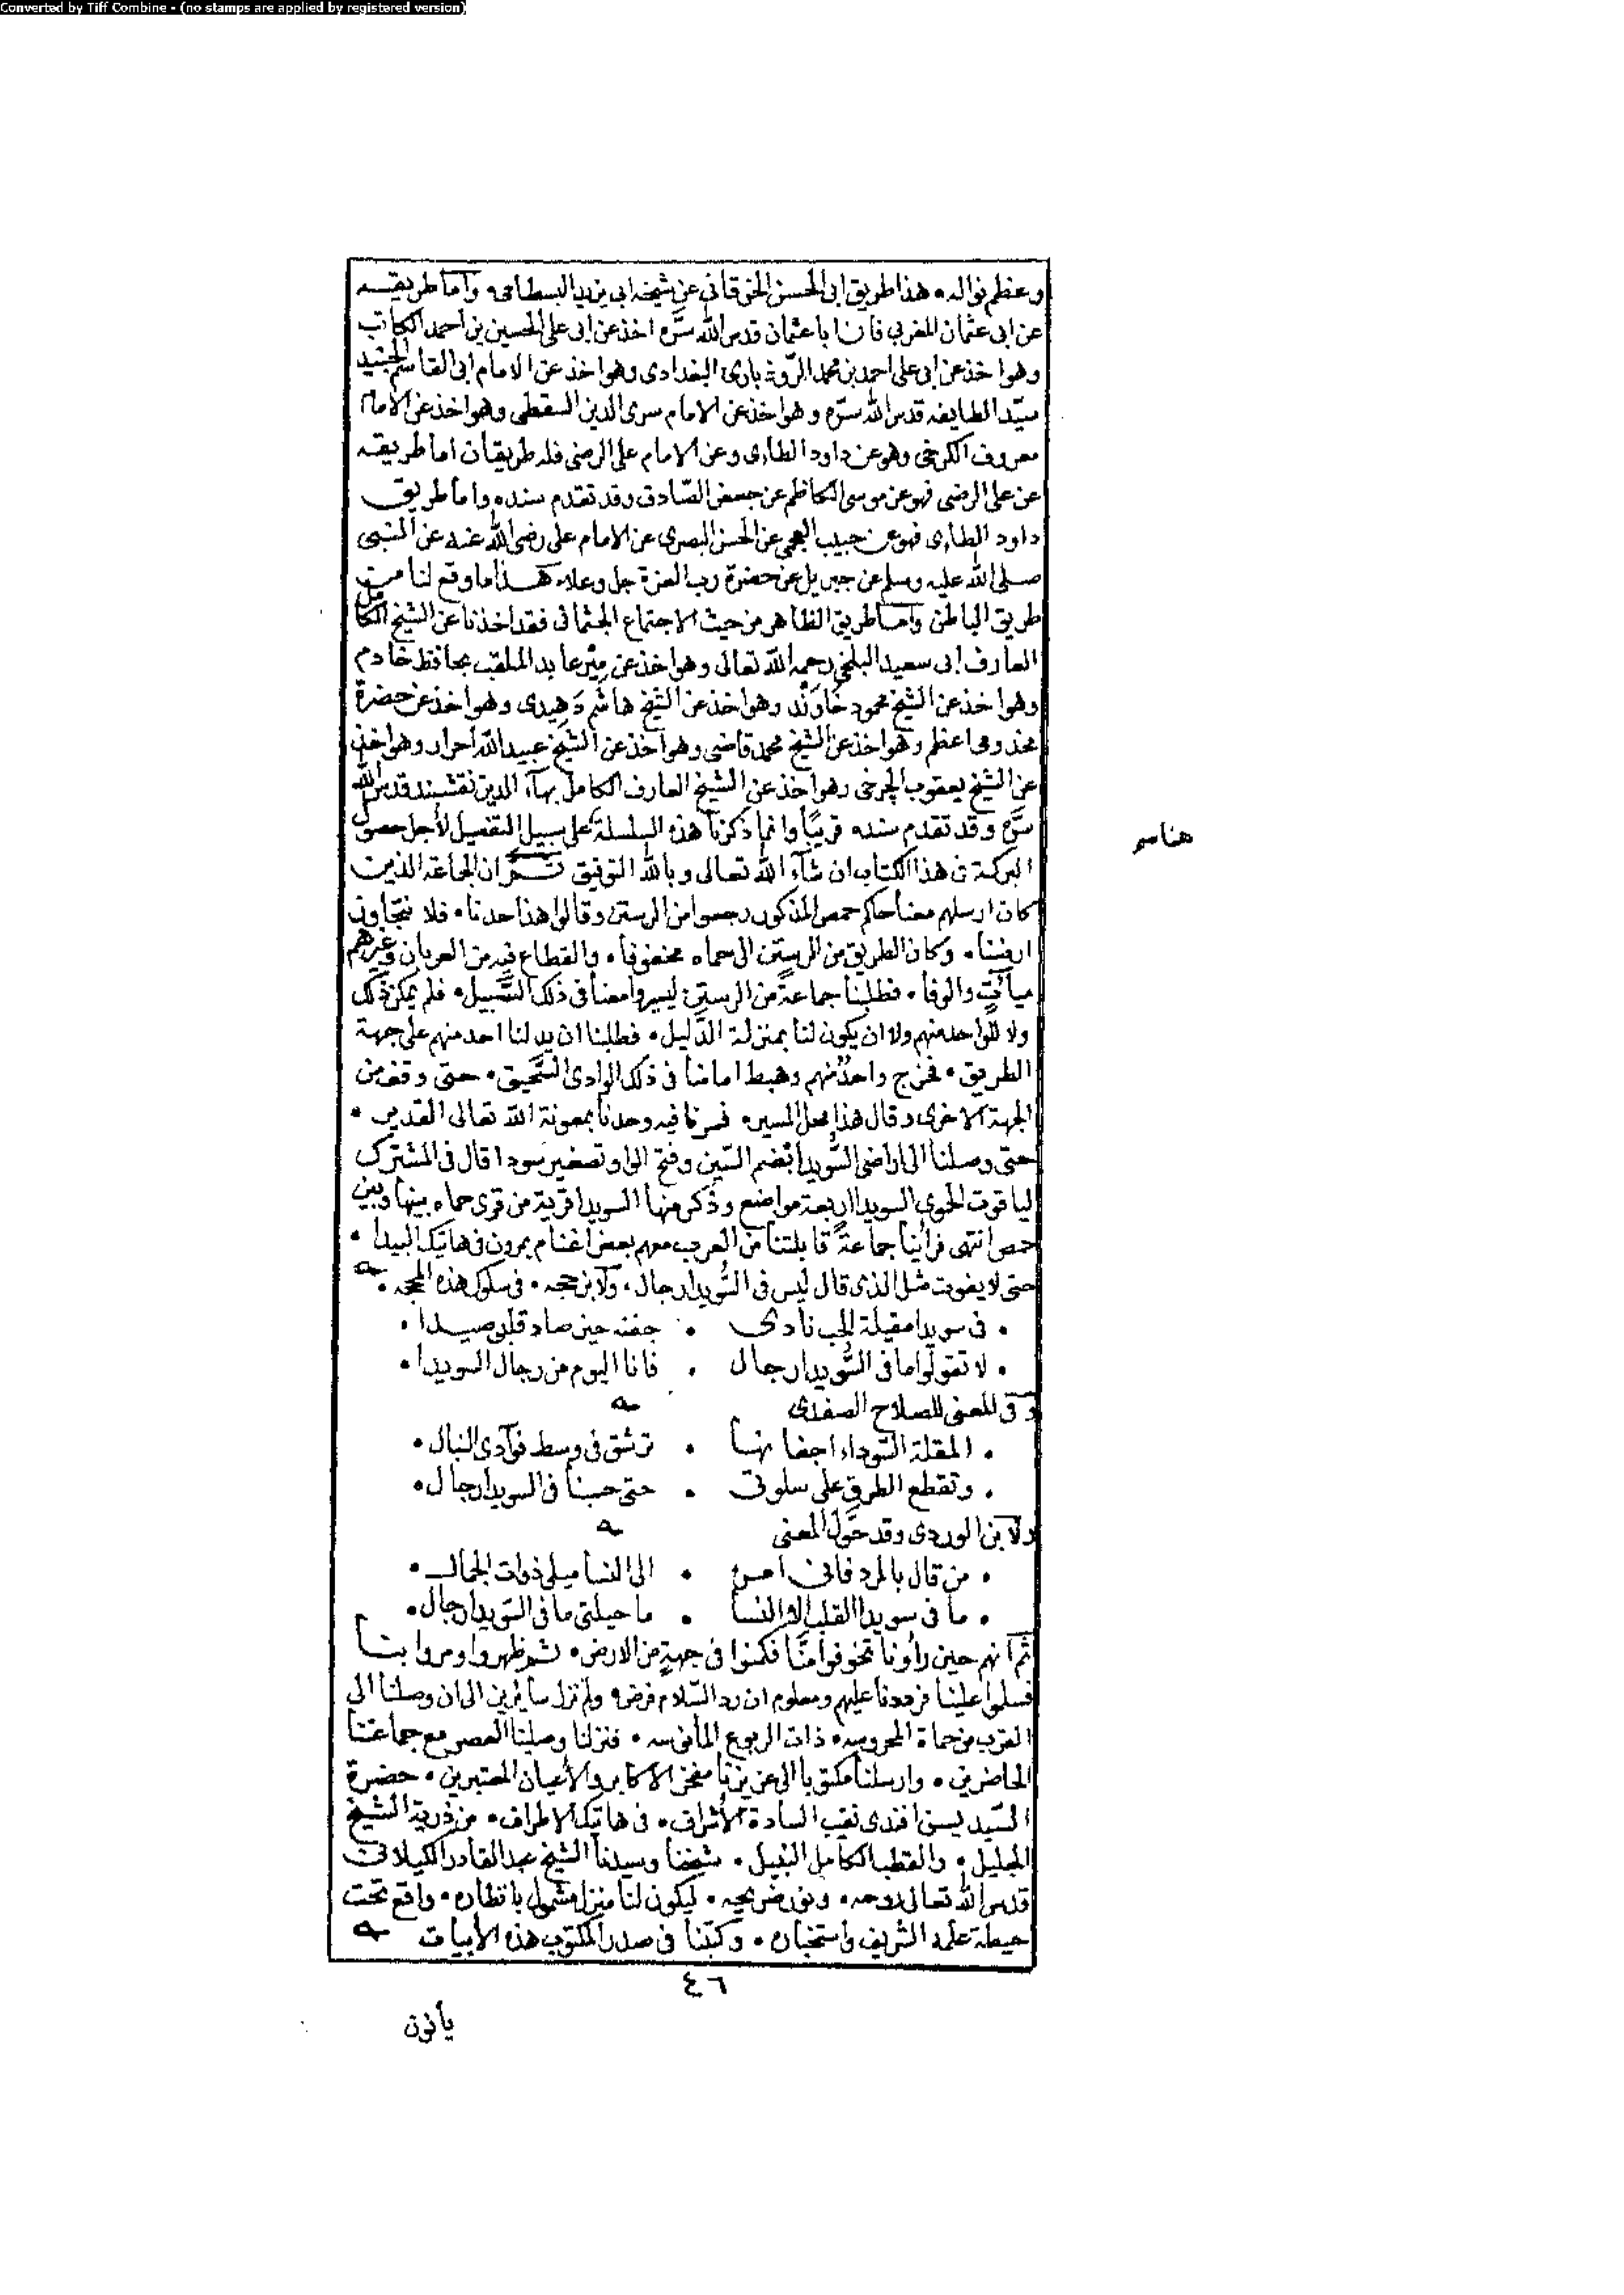 Converted by Tiff Combine - (no stamps are applied by registered version)
وعظم نواله • هذا طريق ابى الحسن الخرقانى عن شيخه ابى يزيد البسطامى • واما طريقه
عن ابى عثمان المغربى فان ابا عثمان قدس الله سره اخذ عن ابى على الحسين بن احمد الكاتب
وهو اخذ عن ابى على احمد بن محمد الروذبارى البغدادى وهو اخذ عن الامام ابى القاسم الجنيد
سيد الطايفه قدس الله سره وهو اخذ عن الامام سرى الدين السقطى وهو اخذ عن الامام
معروف الكرخى وهو عن داود الطاءى وعن الامام على الرضى فله طريقان اما طريقه
عن على الرضى فهو عن موسى الكاظم عن جعفر الصادق وقد تقدم سنده واما طريق
داود الطاءى فهو عن حبيب العجمى عن الحسن البصرى عن الامام على رضى الله عنه عن النبى
صلى الله عليه وسلم عن جبريل عن حضرة رب العزة جل وعلا • هذا ما وقع لنا من
طريق الباطن واما طريق الظاهر من حيث الاجتماع الجثمانى فقد اخذنا عن الشيخ الكامل
العارف ابى سعيد البلخى رحمه الله تعالى وهو اخذ عن مير عابد الملقب بحافظ خادم
وهو اخذ عن الشيخ محمود خاوند وهو اخذ عن الشيخ هاشم دهيدى وهو اخذ عن حضرة
مخدومى اعظم وهو اخذ عن الشيخ محمد قاضى وهو اخذ عن الشيخ عبيد الله احرار وهو اخذ
عن الشيخ يعقوب الچرخى وهو اخذ عن الشيخ العارف الكامل بهآء الدين نقشبند قدس الله
سره وقد تقدم سنده قريبًا وانما ذكرنا هذه السلسلة على سبيل التفصيل لأجل حصول
هنا سر
البركة فى هذا الكتاب ان شآء الله تعالى وبالله التوفيق ثم ان الجماعة الذين
كان ارسلهم معنا حاكم حمص المذكور رجعوا من الرستن وقالوا هذا حدنا • فلا نتجاوز
ارضنا • وكان الطريق من الرستن الى حماه مخفوفا • والقطاع فيه من العربان وغيرهم
ميآت والوفا • فطلبنا جماعةً من الرستن ليسيروا معنا فى ذلك السبيل • فلم يمكن ذلك
ولا للواحد منهم ولا ان يكون لنا بمنزلة الدليل • فطلبنا ان يدلنا احد منهم على جهة
الطريق • فخرج واحدٌ منهم وهبط امامنا فى ذلك الوادى السحيق • حتى وقف من
الجهة الاخرى وقال هذا محل المسير • فسرنا فيه وحدنا بمعونة الله تعالى القدير •
حتى وصلنا الى اراضى السُّويدا بضم السين وفتح الواو تصغير سودا قال فى المشترك
لياقوت الحموى السويدا اربعة مواضع وذكر منها السويدا قرية من قرى حماه بينها وبين
حمص انتهى فرأينا جماعةً قابلتنا من العرب معهم بعض اغنام يمرون فى هاتيك البيدا •
حتى لا يفوت مثل الذى قال ليس فى السُّويدا رجال • ولابن حجه • فى سلوك هذه المحجه •
• فى سويدا مقيلة الحب نادى • جفنه حين صاد قلبى صيدا •
• لا تقولوا ما فى السُّويدا رجال • فانا اليوم من رجال السويدا •
وفى المعنى للصلاح الصفدى
• المقلة السوداء اجفانها • ترشق فى وسط فوآدى النبال •
• وتقطع الطرق على سلوتى • حتى حسبنا فى السويدا رجال •
ولابن الوردى وقد حوّل المعنى
• من قال بالمرد فانى امرؤ • الى النسا ميلى ذوات الجمال •
• ما فى سويدا القلب الا النسا • ما حيلتى ما فى السويدا رجال •
ثم انهم حين رأونا تخوفوا منّا فكمنوا فى جهةٍ من الارض • ثم ظهروا ومروا بنا
فسلموا علينا فرددنا عليهم ومعلوم ان رد السلام فرض • ولم نزل سائرين الى ان وصلنا الى
القرب من حماة المحروسه • ذات الربوع المأنوسه • فنزلنا وصلينا العصر مع جماعتنا
الحاضرين • وارسلنا مكتوبا الى عزيزنا مفخر الاكابر والأعيان المعتبرين • حضرة
السّيد يسن افندى نقيب السادة الأشراف • فى هاتيك الاطراف • من ذرية الشيخ
الجليل • والقطب الكامل النبيل • شيخنا وسيدنا الشيخ عبد القادر الكيلانى
قدس الله تعالى روحه • ونور ضريحه • ليكون لنا منزل مشمول بانظاره • واقع تحت
حيطة علمه الشريف واستخباره • وكتبنا فى صدر المكتوب هذه الأبيات
٤٦